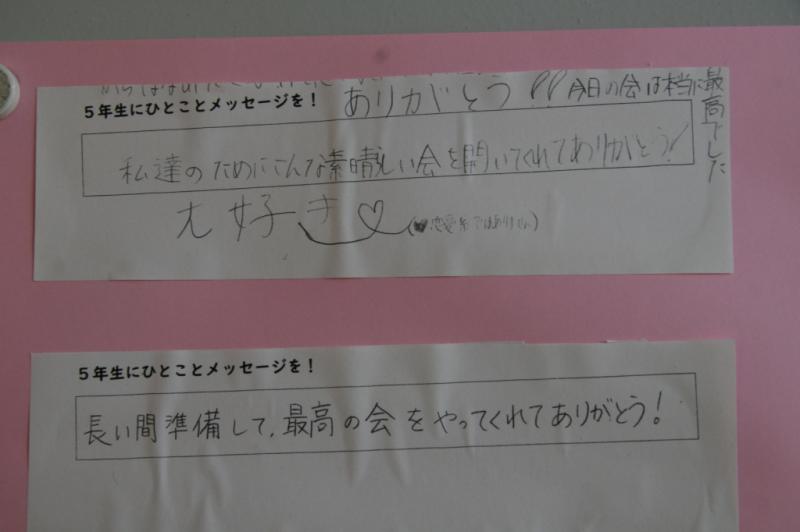 5年生にひとことメッセージを！
ありがとう!! 今日の会は本当に最高でした
私達のためにこんな素晴しい会を開いてくれてありがとう！
大好き♡
(♥恋愛系ではありません)
5年生にひとことメッセージを！
長い間準備して、最高の会をやってくれてありがとう！